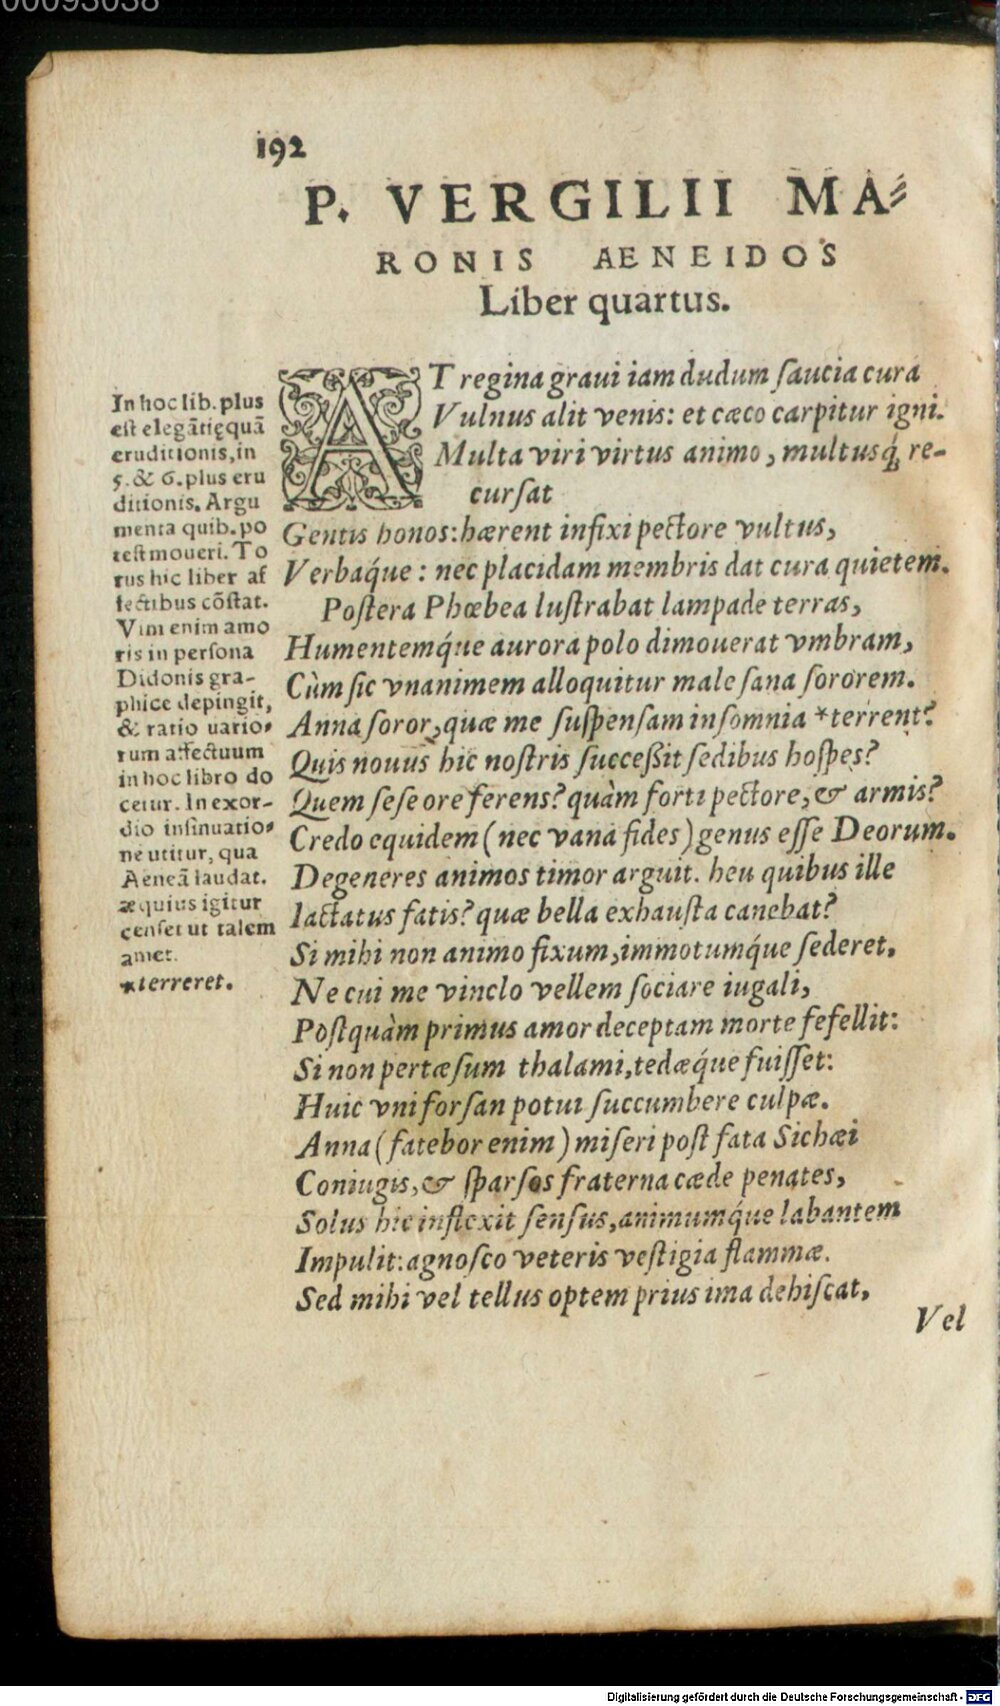 00093038
192
P. VERGILII MA⸗
RONIS AENEIDOS
Liber quartus.
AT regina graui iam dudum ſaucia cura
Vulnus alit venis: et cæco carpitur igni.
Multa viri virtus animo, multusq́; re-
curſat
Gentis honos: hærent infixi pectore vultus,
Verbaq́ue: nec placidam membris dat cura quietem.
Poſtera Phœbea luſtrabat lampade terras,
Humentemq́ue aurora polo dimouerat vmbram,
Cùm ſic vnanimem alloquitur male ſana ſororem.
Anna ſoror, quæ me ſuſpenſam inſomnia *terrent?
Quis nouus hic noſtris ſucceßit ſedibus hoſpes?
Quem ſeſe ore ferens? quàm forti pectore, & armis?
Credo equidem (nec vana fides) genus eſſe Deorum.
Degeneres animos timor arguit. heu quibus ille
Iactatus fatis? quæ bella exhauſta canebat?
Si mihi non animo fixum, immotumq́ue ſederet,
Ne cui me vinclo vellem ſociare iugali,
Poſtquàm primus amor deceptam morte fefellit:
Si non pertæſum thalami, tedæq́ue fuiſſet:
Huic vni forſan potui ſuccumbere culpæ.
Anna (fatebor enim) miſeri poſt fata Sichæi
Coniugis, & ſparſos fraterna cæde penates,
Solus hic inflexit ſenſus, animumq́ue labantem
Impulit: agnoſco veteris veſtigia flammæ.
Sed mihi vel tellus optem prius ima dehiſcat,
Vel
In hoc lib. plus
eſt elegātię quā
eruditionis, in
5. & 6. plus eru
ditionis. Argu
menta quib. po
teſt moueri. To
tus hic liber af
fectibus cōſtat.
Vim enim amo
ris in perſona
Didonis gra-
phice depingit,
& ratio uario⸗
rum affectuum
in hoc libro do
cetur. In exor-
dio inſinuatio⸗
ne utitur, qua
Aeneā laudat.
æquius igitur
cenſet ut talem
amet.
*terreret.
Digitalisierung gefördert durch die Deutsche Forschungsgemeinschaft - DFG